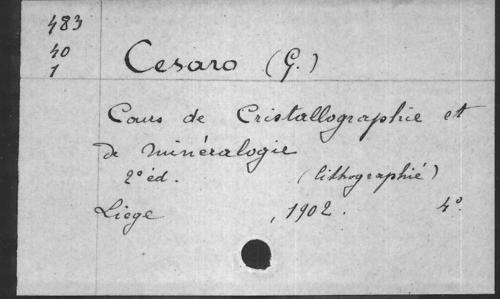 483
40
1
Cesaro (G.)
Cours de Cristallographie et
de minéralogie
2º éd. (lithographié)
Liège, 1902. 4º.